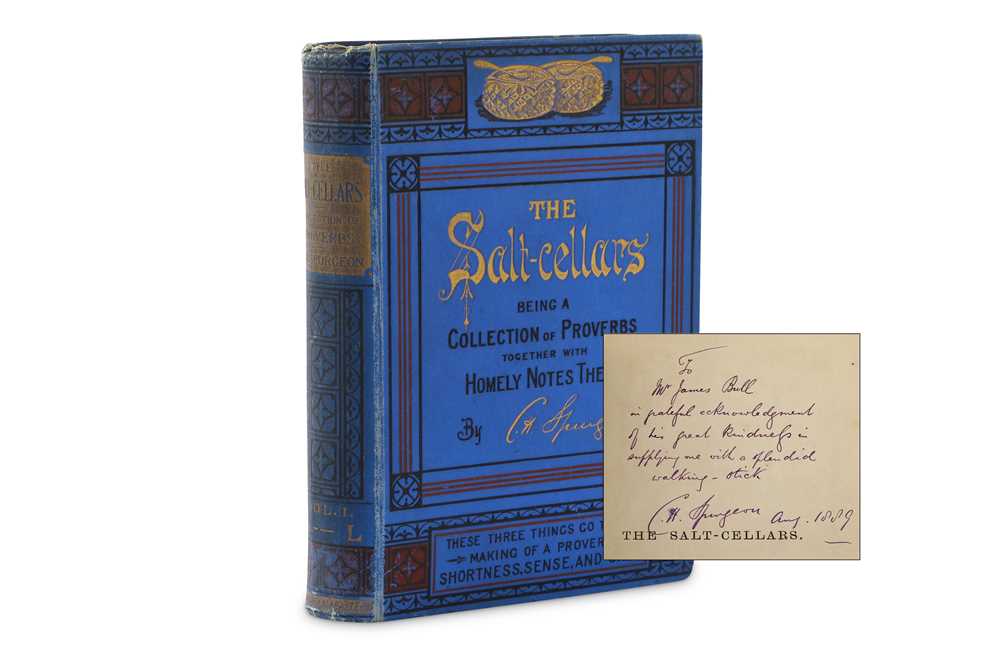 THE
Salt-cellars
BEING A
COLLECTION OF PROVERBS
TOGETHER WITH
HOMELY NOTES THE
By C. H. Spurg
THESE THREE THINGS GO T
MAKING OF A PROVER
SHORTNESS, SENSE, AND
-CELLARS
PROVERBS
SPURGEON
OL. I.
— L
To
Mr James Bull
in grateful acknowledgment
of his great kindness in
supplying me with a splendid
walking-stick
C. H. Spurgeon Aug. 1889
THE SALT-CELLARS.